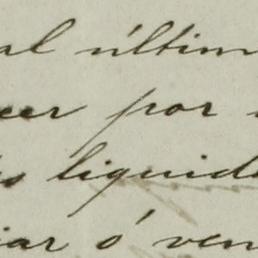 al últim
cer por
s liquid
iar ó ven